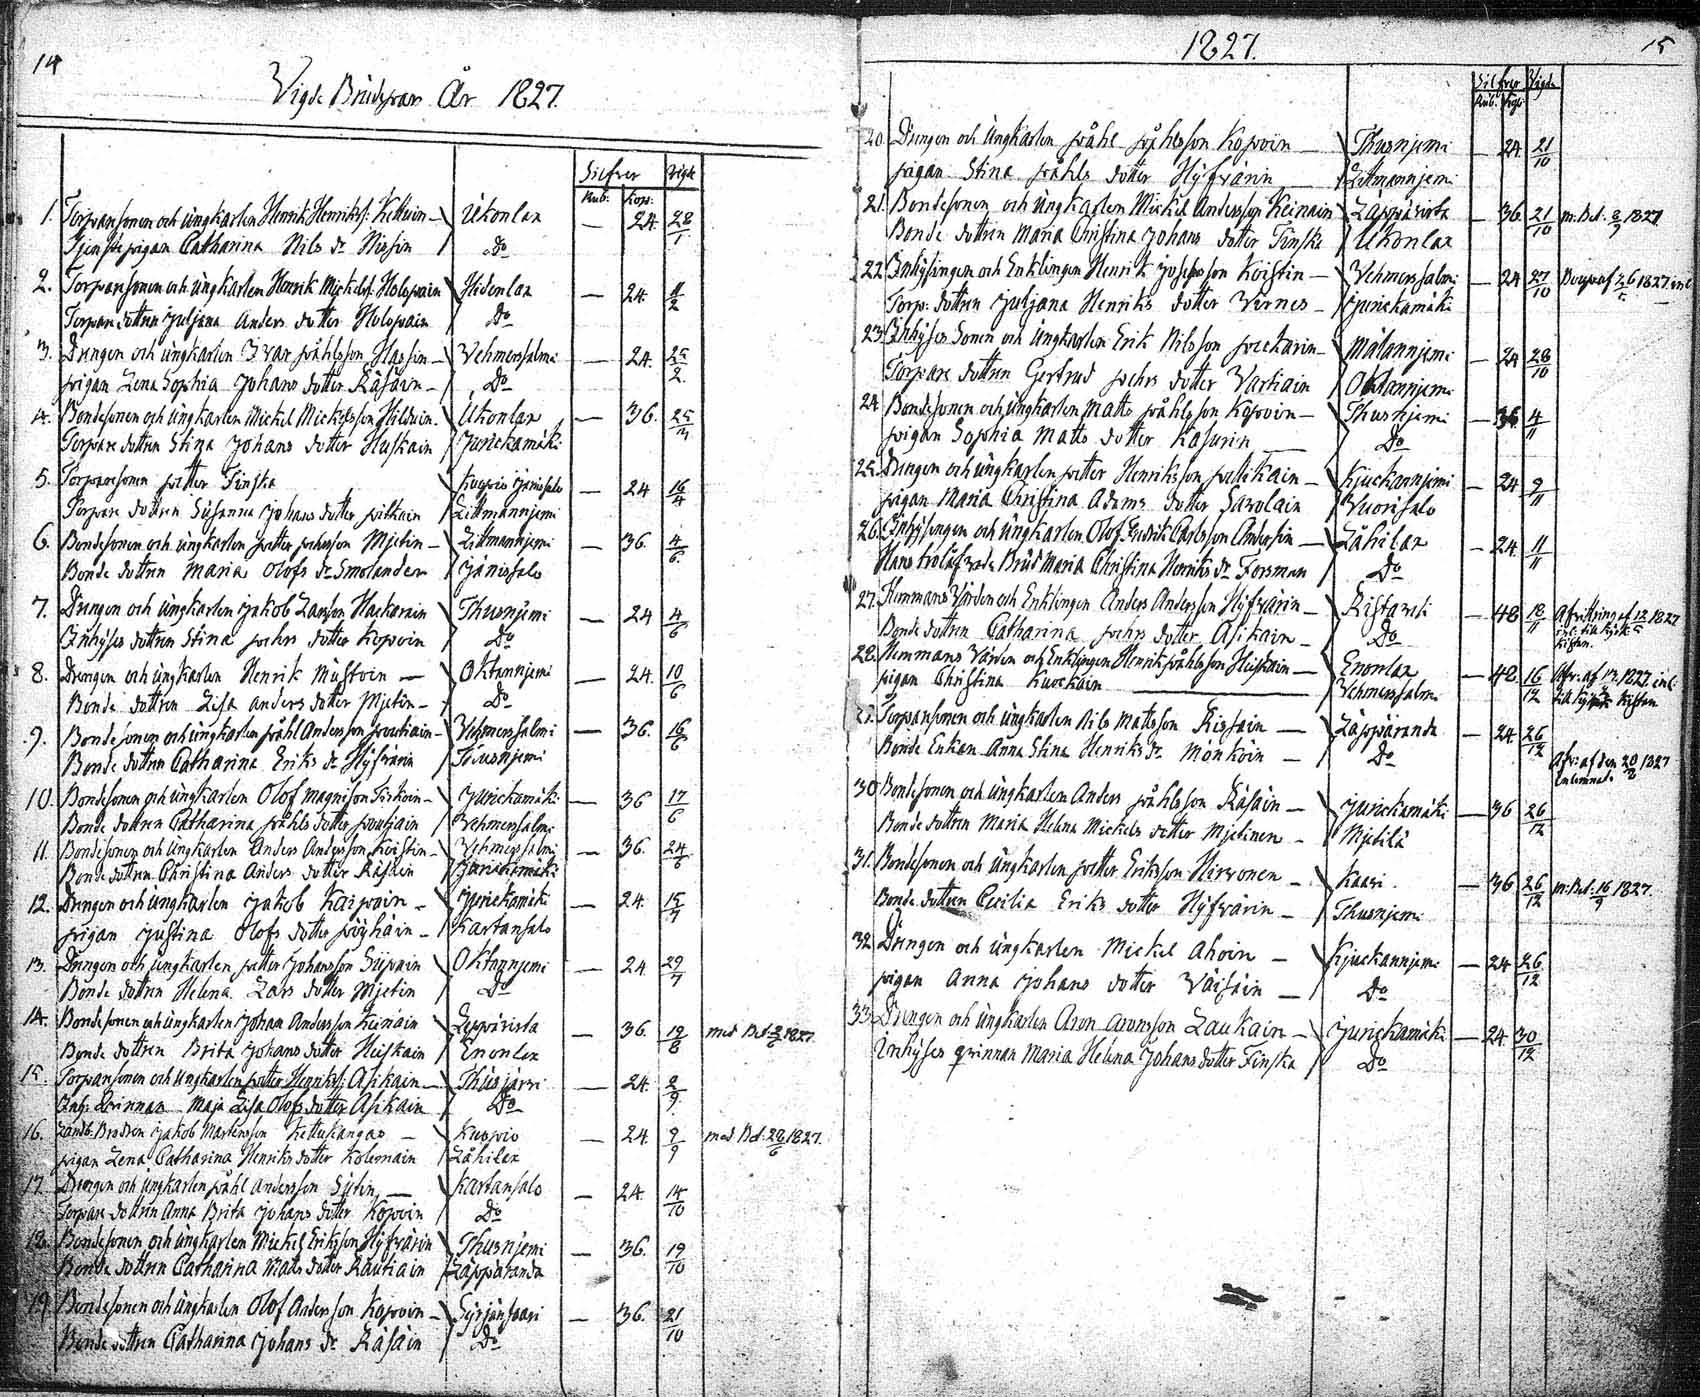 14
Vigde Brudepar År 1827.
Silfver Vigde
Rub: Kop:
1. Torparsonen och Ungkarlen Henrik Henrikss: Kettuin Ukonlax — 24. 28/1.
Tjenstepigan Catharina Nils dr Nissin Do
2. Torparsonen och Ungkarlen Henrik Mickelss: Holopain Hidenlax — 24. 11/2
Torpare dottren Juljana Anders dotter Holopain Do
3. Drengen och Ungkarlen Ivar Påhlsson Hassin Vehmersalmi — 24. 25/2.
pigan Lena Sophia Johans dotter Räsäin Do
4. Bondesonen och Ungkarlen Mickel Mickelsson Hilduin Ukonlax — 36. 25/3
Torpare dottren Stina Johans dotter Huskain Jurickamäki
5. Torparesonen Petter Finska Kuopio Jänisalo — 24 16/4
Torpare dottren Susanna Johans dotter Pitkain Littmanniemi
6. Bondesonen och Ungkarlen Petter Pehrsson Mjetin Littmanniemi — 36. 4/6.
Bonde dottren Maria Olofs dr Smolander Jänissalo
7. Drengen och Ungkarlen Jakob Larsson Hackarain Thusnjemi — 24 4/6
Inhyses dottren Stina Pehrs dotter Kopoin Do
8. Drengen och Ungkarlen Henrik Mustoin Oktannjemi — 24. 10/6
Bonde dottren Lisa Anders dotter Mjetin Do
9. Bondesonen och Ungkarlen Påhl Andersson Poutiain Vehmersalmi — 36. 16/6
Bonde dottren Catharina Eriks dr Hyfvärin Thusnjemi
10. Bondesonen och Ungkarlen Olof Magnisson Jurickamäki — 36 17/6
Bonde dottren Catharina Påhls dotter Poutjain Vehmersalmi
11. Bondesonen och Ungkarlen Anders Andersson Koistin Vehmersalmi — 36. 24/6
Bonde dottren Christina Anders dotter Räsäin Jurickamäki
12. Drengen och Ungkarlen Jakob Kaipain Jurickamäki — 24. 15/7
pigan Justina Olofs dotter Pöyhäin Kartansalo
13. Drengen och Ungkarlen Petter Johansson Siipain Oktannjemi — 24 29/7
Bonde dottren Helena Lars dotter Mjetin Do
14. Bondesonen och Ungkarlen Johan Andersson Keinain Leppärista — 36. 19/8 med Bet. 1827.
Bonde dottren Brita Johans dotter Heiskain Enonlax
15. Torparsonen och Ungkarlen Petter Henrikss: Asikain Thusjärvi — 24. 2/9.
Inh: Qvinnan Maja Lisa Olofs dotter Asikain Do
16. Landb: Brodren Jakob Martensson Kettukangas Kuopio — 24. 9/9 med Bet. 28/6 1827.
pigan Lena Catharina Henriks dotter Kolemain Låhilax
17. Drengen och Ungkarlen Påhl Andersson Sutin Kartansalo — 24. 14/10
Torpare dottren Anna Brita Johans dotter Kopoin Do
18. Bondesonen och Ungkarlen Mickel Eriksson Hyfvärin Thusnjemi — 36. 19/10
Bonde dottren Catharina Matts dotter Rautiain Läppäranda
19. Bondesonen och Ungkarlen Olof Andersson Kopoin Syrjänsaari — 36. 21/10
Bonde dottren Catharina Johans dr Räsäin Do
1827. 15
Silfver Vigde
Rub. Kop:
20. Drengen och Ungkarlen Påhl Påhlsson Kopoin Thusnjemi — 24 21/10
pigan Stina Påhls dotter Hyfvärin Littmannjemi
21. Bondesonen och Ungkarlen Mickel Andersson Keinain Läppärista — 36. 21/10 m: Bet. 8/9 1827
Bonde dottren Maria Christina Johans dotter Finske Ukonlax
22. Inhysingen och Enklingen Henrik Josepsson Koistin Vehmersalmi — 24 27/10 1827 inl
Torp: dottren Juljana Henriks dotter Vornes Jurickamäki
23. Inhyses Sonen och Ungkarlen Erik Nilsson Peckarin Mälannjemi — 24 28/10
Torpare dottren Gertrud Pehrs dotter Vartiain Oktannjemi
24 Bondesonen och Ungkarlen Matts Påhlsson Kopoin Thusnjemi — 36. 4/11
pigan Sophia Matts dotter Kasurin Do
25. Drengen och Ungkarlen Petter Henriksson Pellikain Kjuckannjemi — 24 9/11
pigan Maria Christina Adams dotter Savolain Vuorisalo
26. Inhysingen och Ungkarlen Olof Fredrik Carlsson Andersin Låhilax — 24. 11/11
Hans trolofvade Brud Maria Christina Henriks dr Forsman Do
27. Hemmans Värden och Enklingen Anders Andersson Hyfvärin Ristavesi — 48 18/11 Afvittring af 12 1827
Bonde dottren Catharina Pehrs dotter Asikain Do inl. till Kyrk Kistan.
28. Hemmans Värden och Enklingen Henrik Påhlsson Huskain Enonlax — 48. 16/12 Afv: af 1827 inl:
pigan Christina Kuockain Vehmersalmi till Kyrk Kistan
29. Torparsonen och Ungkarlen Nils Mattsson Rissain Läppäranda — 24. 26/12
Bonde Enkan Anna Stina Henriks dr Mönköin Do Afv: af den 20 1827 inlemnad.
30 Bondesonen och Ungkarlen Anders Påhlsson Räsäin Jurickamäki — 36 26/12
Bonde dottren Maria Helena Mickels dotter Mjetinen Mjetilä
31. Bondesonen och Ungkarlen Petter Eriksson Hirvonen Kaavi. — 36 26/12 m: Bet. 16/9 1827.
Bonde dottren Cecilia Eriks dotter Hyfvärin Thusnjemi
32. Drengen och Ungkarlen Mickel Ahoin Kjuckannjemi — 24 26/12
pigan Anna Johans dotter Väisäin Do
33. Drengen och Ungkarlen Aron Aronsson Laukain Jurickamäki — 24. 30/12
Inhyses qvinnan Maria Helena Johans dotter Finska Do